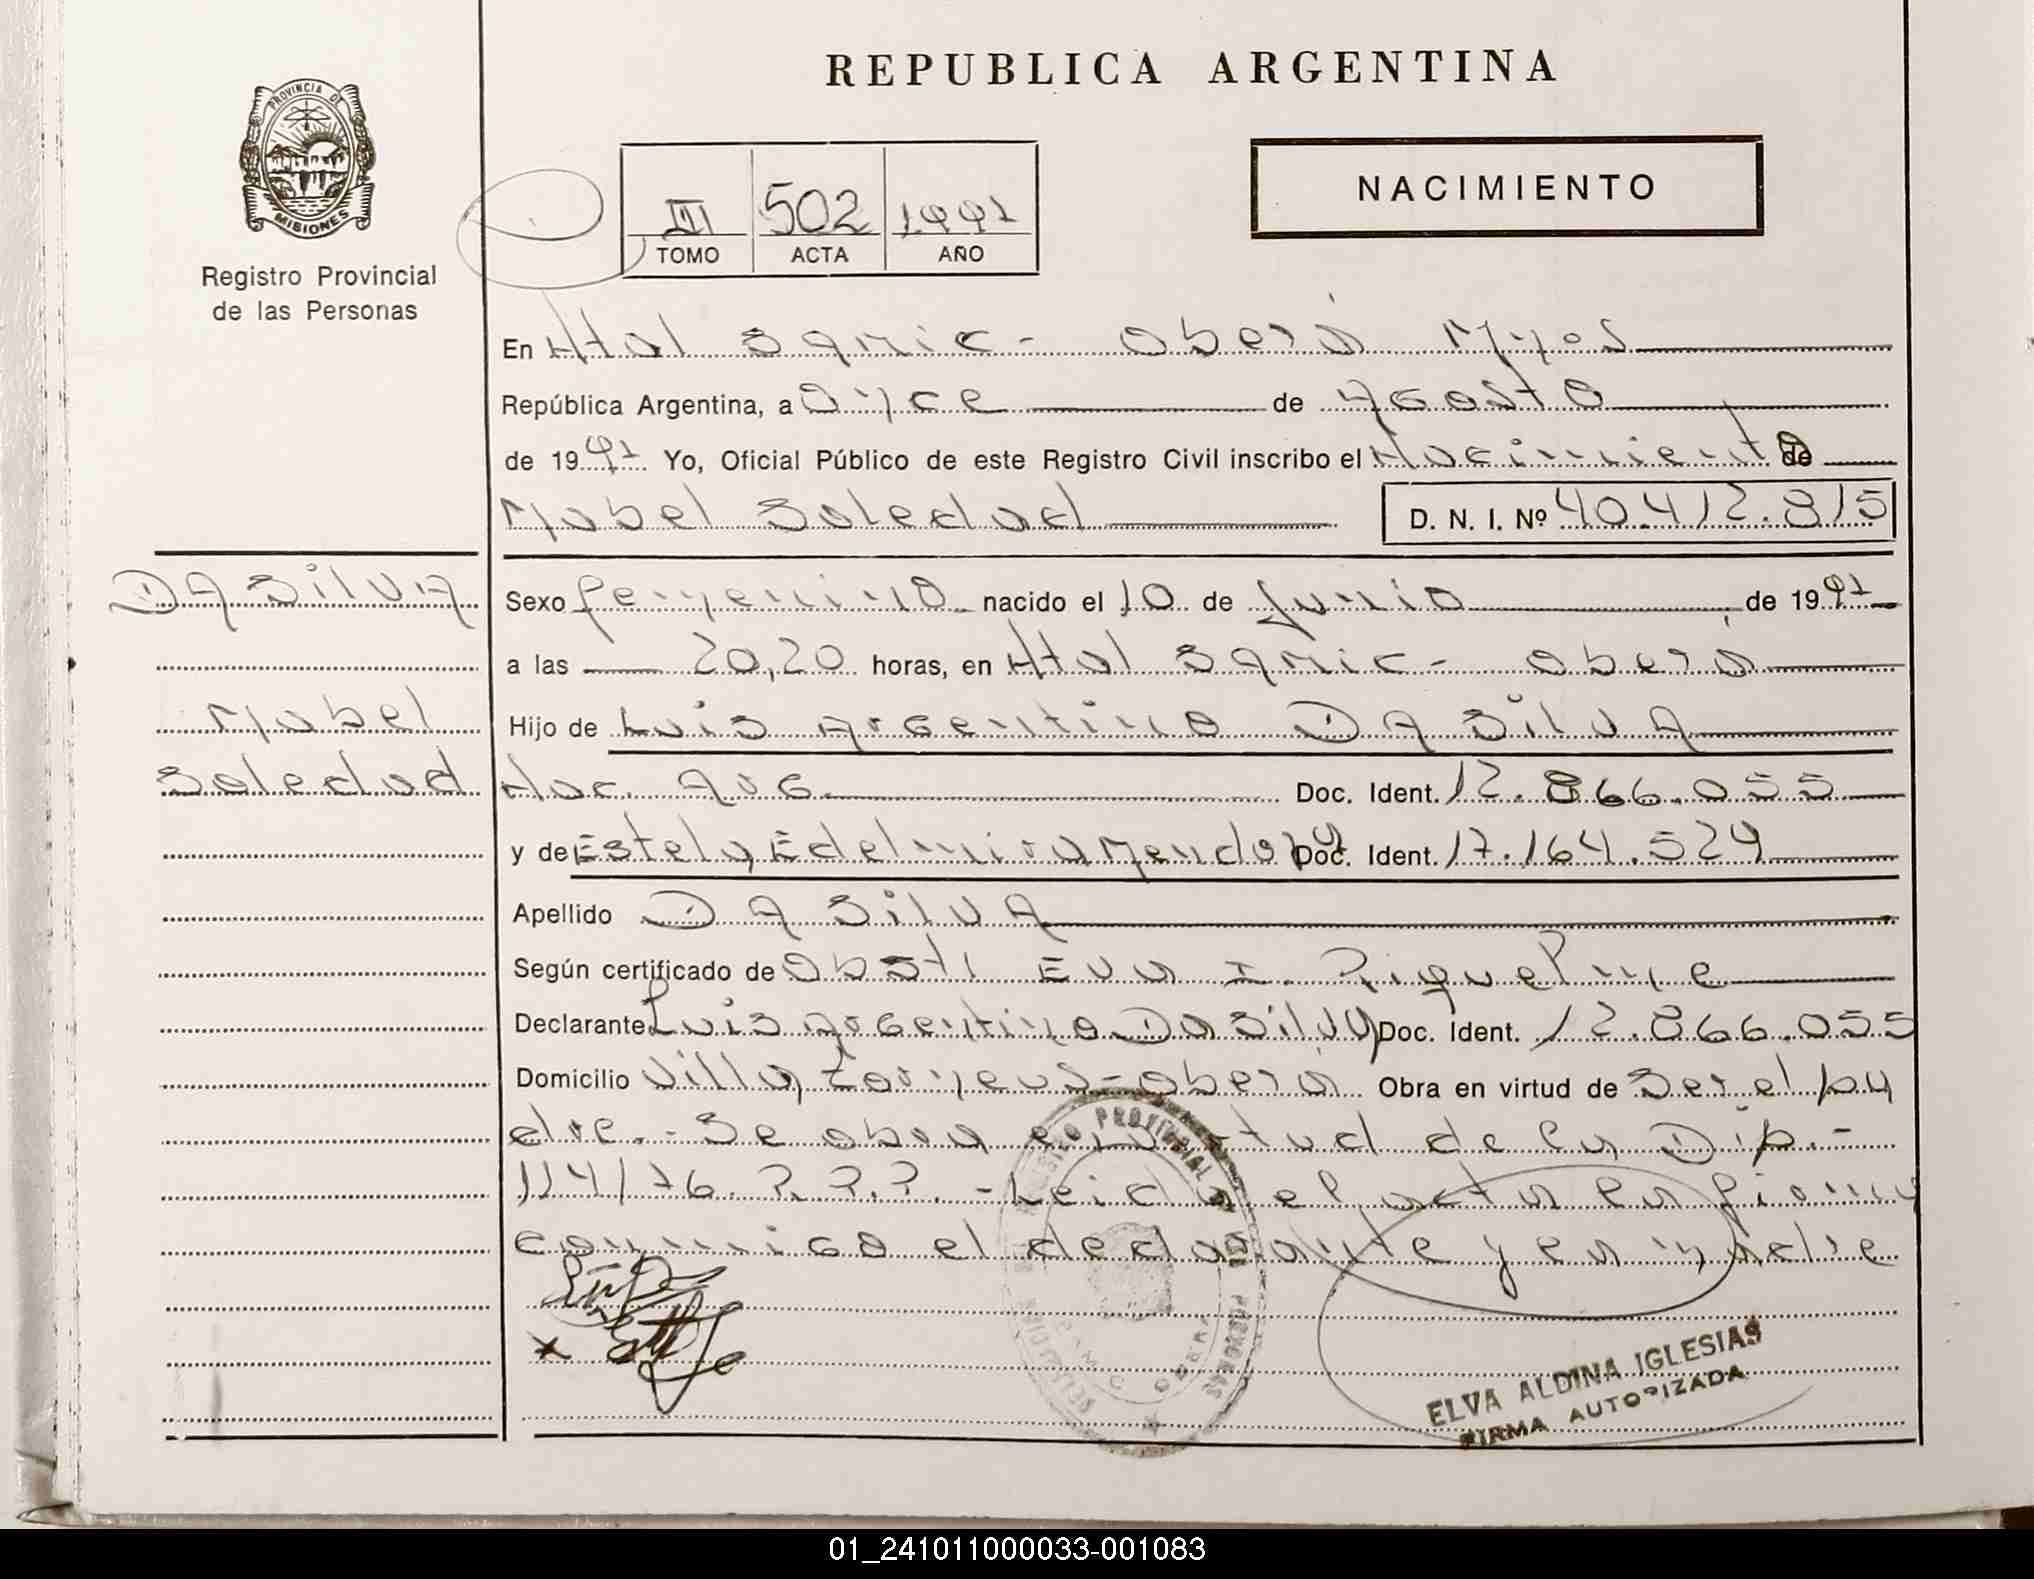 REPUBLICA ARGENTINA
PROVINCIA DE
MISIONES
Registro Provincial
de las Personas
III 502 1997
TOMO ACTA AÑO
NACIMIENTO
En Htal Samic - Oberá Mnes
República Argentina, a Once de Agosto
de 1997 Yo, Oficial Público de este Registro Civil inscribo el Nacimiento de
Mabel Soledad D. N. I. Nº 40.412.815
DA SILVA
Mabel
Soledad
Sexo femenino nacido el 10 de Junio de 1997
a las 20,20 horas, en Htal Samic - Oberá
Hijo de Luis Argentino DA SILVA
Nac. Arg. Doc. Ident. 12.866.055
y de Estela Edelmira Mendoza Doc. Ident. 17.164.524
Apellido DA SILVA
Según certificado de Obst. Eva I. Riquelme
Declarante Luis Argentino Da Silva Doc. Ident. 12.866.055
Domicilio Villa - Oberá Obra en virtud de Ser el pa
dre.- Se obra en virtud de la Dip.-
114/76. P.P.P. - Leida el acta la firma
conmigo el declarante y la madre
REGISTRO PROVINCIAL DE LAS PERSONAS
MISIONES
OBERA
ELVA ALDINA IGLESIAS
FIRMA AUTORIZADA
01_241011000033-001083